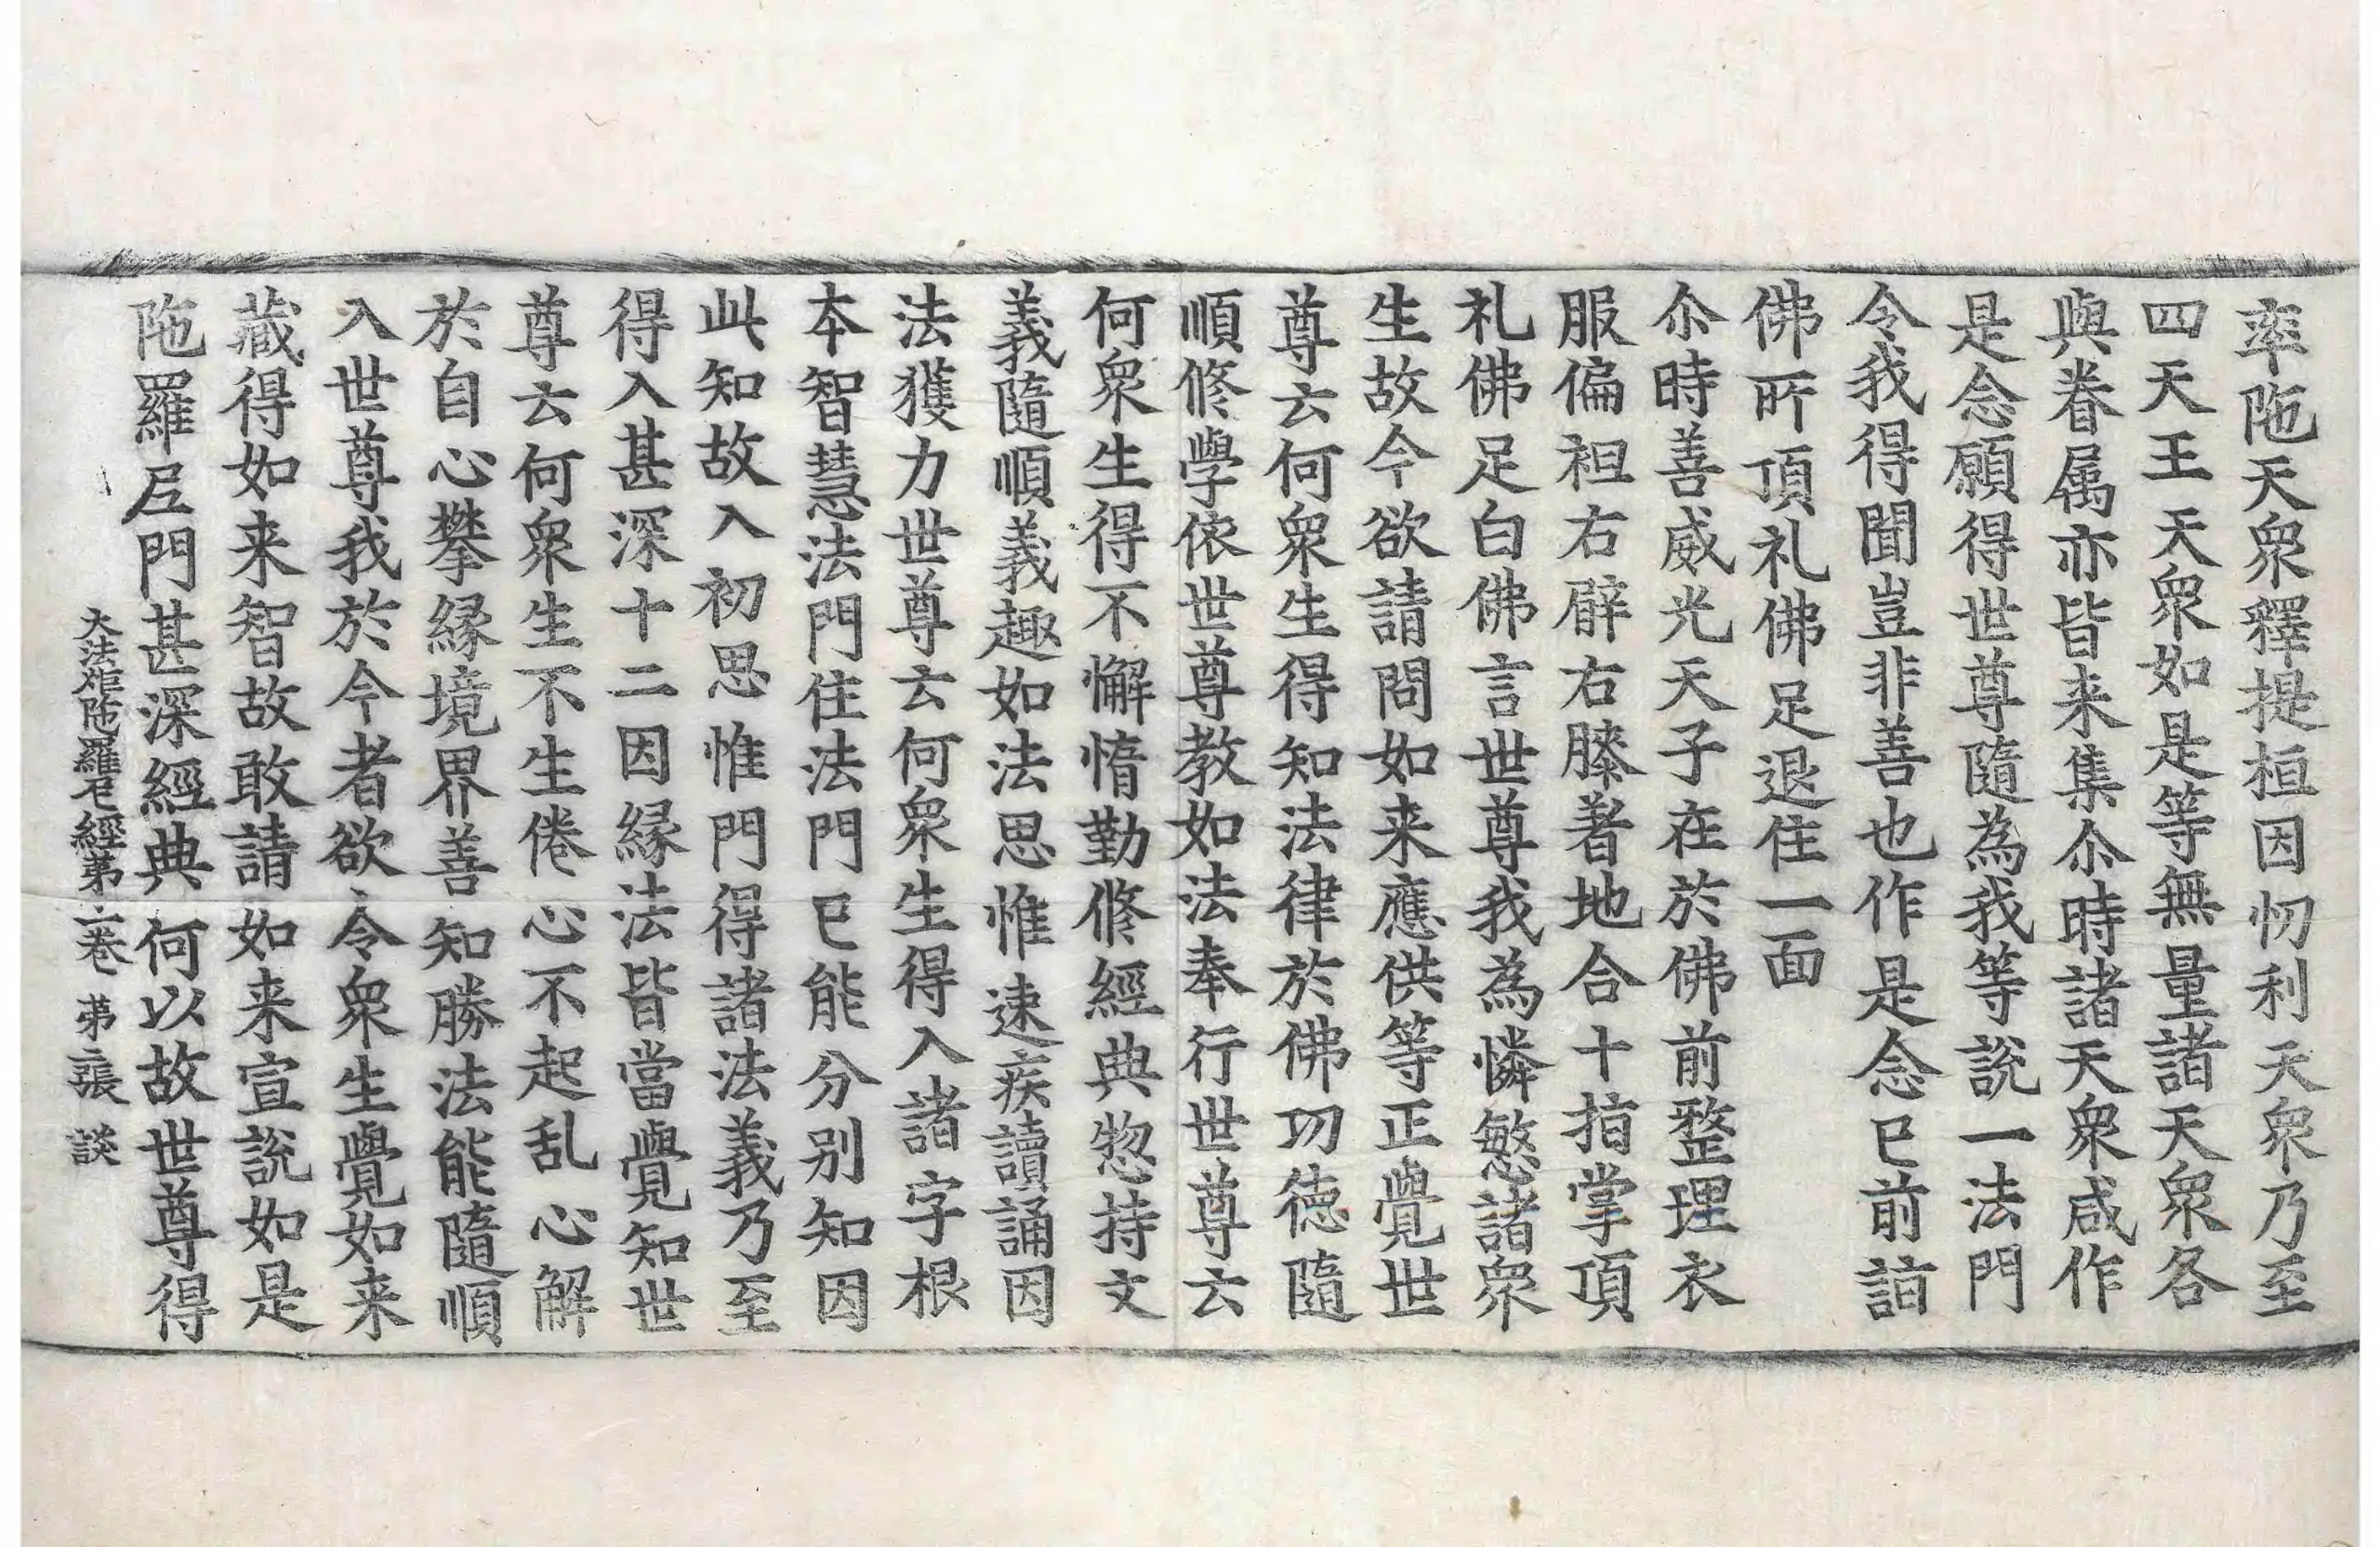 率陁天衆釋提桓因忉利天衆乃至
四天王天衆如是等無量諸天衆各
與眷属亦皆来集尒時諸天衆咸作
是念願得世尊隨為我等說一法門
令我得聞豈非善也作是念已前詣
佛所頂礼佛足退住一面
尒時善威光天子在於佛前整理衣
服偏袒右臂右膝著地合十指掌頂
礼佛足白佛言世尊我為憐愍諸衆
生故今欲請問如来應供等正覺世
尊云何衆生得知法律於佛功徳隨
順修學依世尊教如法奉行世尊云
何衆生得不懈惰勤修經典惣持文
義隨順義趣如法思惟速疾讀誦因
法獲力世尊云何衆生得入諸字根
本智慧法門住法門已能分别知因
此知故入初思惟門得諸法義乃至
得入甚深十二因縁法皆當覺知世
尊云何衆生不生倦心不起乱心解
於自心攀縁境界善知勝法能隨順
入世尊我於今者欲令衆生覺如来
藏得如来智故敢請如来宣說如是
陁羅尼門甚深經典何以故世尊得
大法炬陁羅尼經苐二卷 苐二張 談